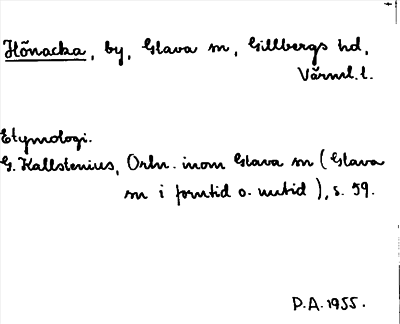 Hönacka, by, Glava sn, Gillbergs hd,
Värml. l.
Etymologi.
G. Kallstenius, Ortn. inom Glava sn (Glava
sn i forntid o. nutid), s. 59.
P.A. 1955.